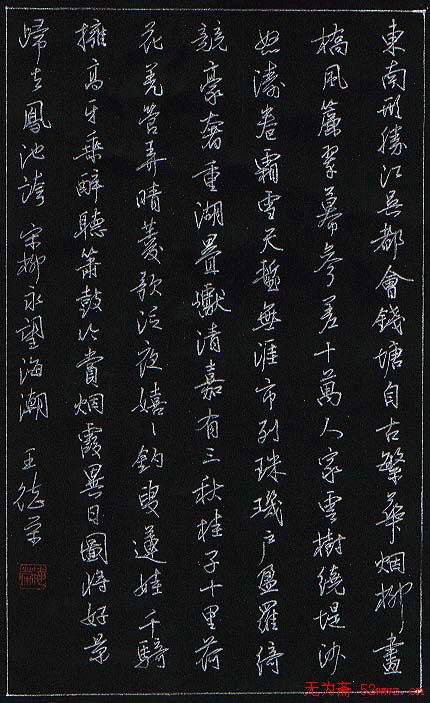 東南形勝江吳都會錢塘自古繁華烟柳畫
橋風簾翠幕參差十萬人家雲樹繞堤沙
怒濤卷霜雪天塹無涯市列珠璣戶盈羅綺
競豪奢重湖疊巘清嘉有三秋桂子十里荷
花羌管弄晴菱歌泛夜嬉〻釣叟蓮娃千騎
擁高牙乘醉聽簫鼓吟賞烟霞異日圖將好景
歸去鳳池誇 宋柳永望海潮 王德荣
无为斋